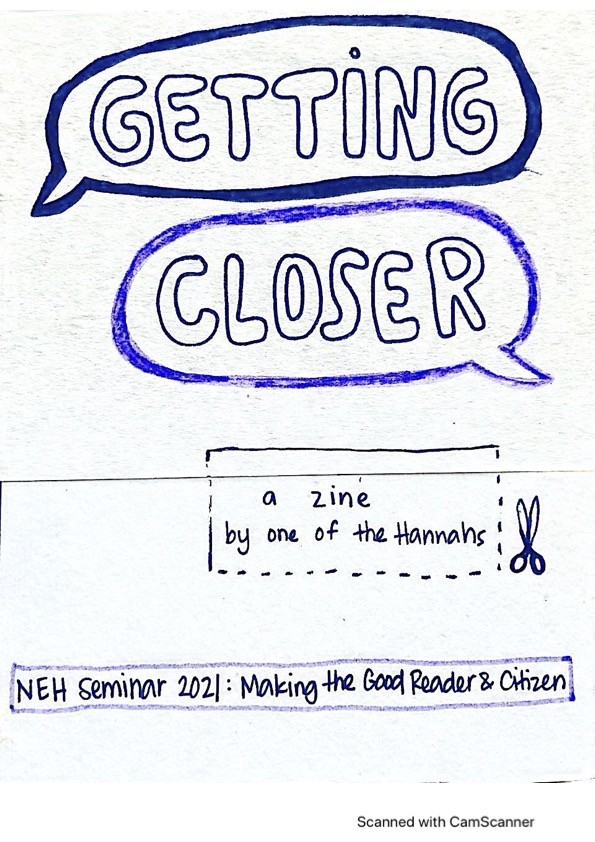 GETTING
CLOSER
a zine
by one of the Hannahs
NEH Seminar 2021: Making the Good Reader & Citizen
Scanned with CamScanner